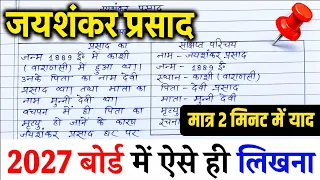 जयशंकर प्रसाद
जयशंकर प्रसाद
प्रसाद का
जन्म 1889 ई० में काशी
(वाराणसी) में हुआ था।
उनके पिता का नाम देवी
प्रसाद था। तथा माता का
नाम मुन्नी देवी था।
बचपन में ही पिता का
मृत्यु हो जाने के कारण
जयशंकर प्रसाद घर पर
संक्षिप्त परिचय
नाम - जयशंकर प्रसाद
जन्म - 1889 ई०
स्थान - काशी (वाराणसी)
पिता - देवी प्रसाद
माता - मुन्नी देवी
मृत्यु
मात्र 2 मिनट में याद
2027 बोर्ड में ऐसे ही लिखना